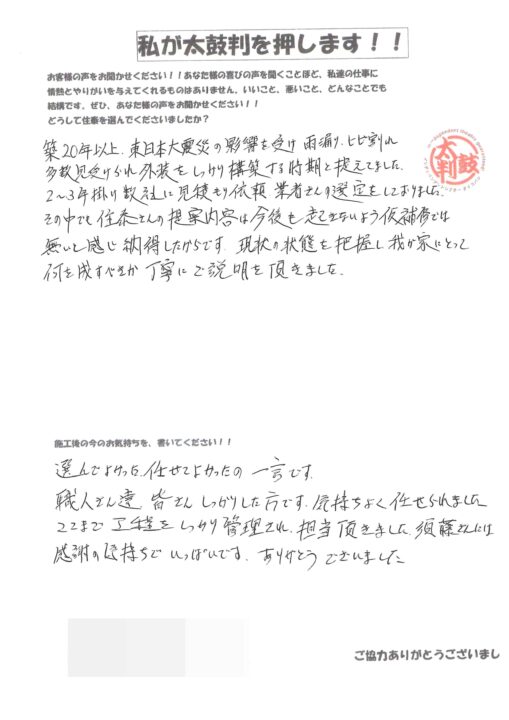 私が太鼓判を押します！！
お客様の声をお聞かせください！！あなた様の喜びの声を聞くことほど、私達の仕事に
情熱とやりがいを与えてくれるものはありません。いいこと、悪いこと、どんなことでも
結構です。ぜひ、あなた様の声をお聞かせください！！
どうして住泰を選んでくださいましたか？
築20年以上、東日本大震災の影響を受け 雨漏り、ヒビ割れ
多数見受けられ 外装をしっかり構築する時期と捉えてました。
2～3年掛り数社に見積もり依頼 業者さんの選定をしておりました。
その中でも住泰さんの提案内容は今後も起きないよう仮補修では
無いと感じ 納得したからです。現状の状態を把握し 我が家にとって
何を成すべきか 丁寧に ご説明を頂きました。
太鼓判
施工後の今のお気持ちを、書いてください！！
選んでよかった、任せてよかったの 一言です。
職人さん達、皆さん しっかりした方です。気持ちよく 任せられました
ここまで 工程を しっかり 管理され、担当頂きました、須藤さんには
感謝の気持ちで いっぱいです。ありがとう ございました
ご協力ありがとうございまし